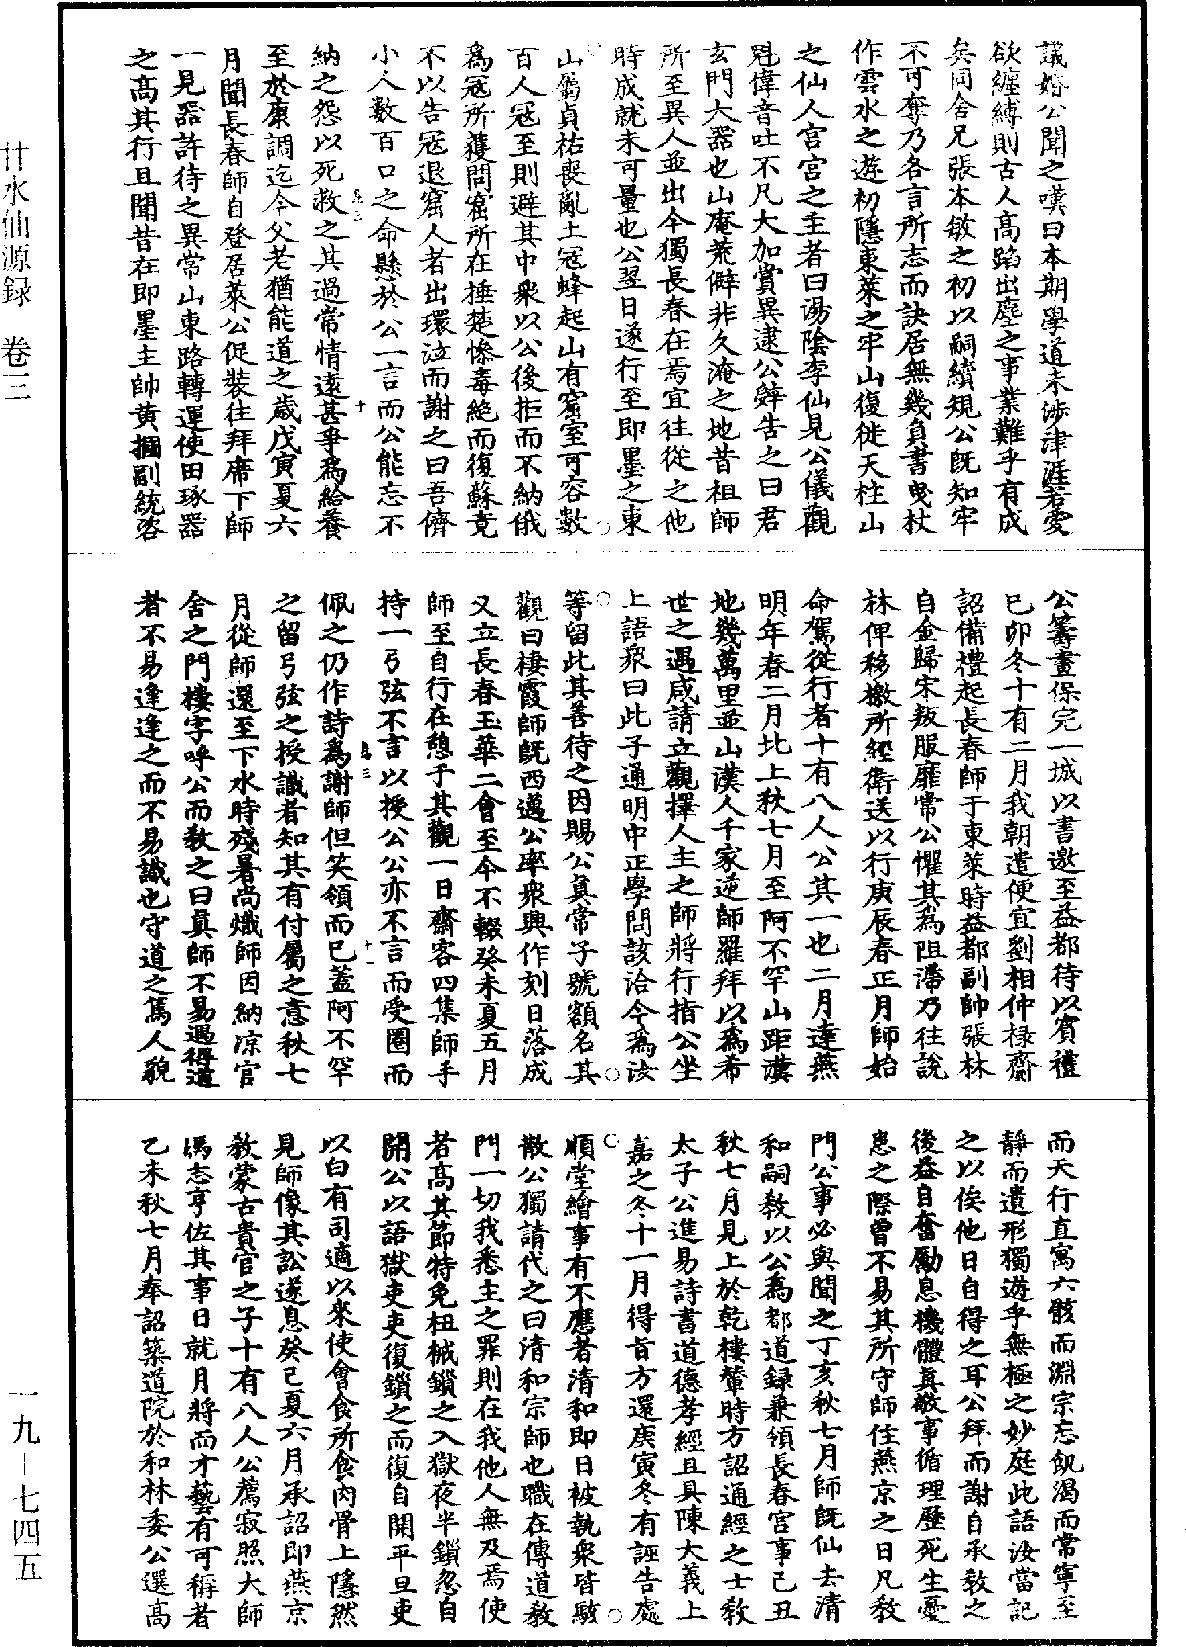 議婚公聞之嘆曰本期學道未涉津涯若愛
欲纏縛則古人高蹈出塵之事業難乎有成
矣同舍兄張本敏之初以嗣續規公既知牢
不可奪乃各言所志而訣居無幾負書曳杖
作雲水之遊初隱東萊之牢山復徙天柱山
之仙人宮宮之主者曰湯陰李仙見公儀觀
魁偉音吐不凡大加賞異逮公辭告之曰君
玄門大器也山庵荒僻非久淹之地昔祖師
所至異人並出今獨長春在焉宜往從之他
時成就未可量也公翌日遂行至即墨之東
山屬貞祐喪亂土寇蜂起山有窟室可容數
百人寇至則避其中衆以公後拒而不納俄
爲寇所獲問窟所在捶楚慘毒絶而復蘇竟
不以告寇退窟人者出環泣而謝之曰吾儕
小人數百口之命懸於公一言而公能忘不
納之怨以死救之其過常情遠甚爭爲給養
至於康調迄今父老猶能道之歲戊寅夏六
月聞長春師自登居萊公促裝往拜席下師
一見器許待之異常山東路轉運使田琢器
之高其行且聞昔在即墨主帥黄摑副統咨
公籌畫保完一城以書邀至益都待以賓禮
已卯冬十有二月我朝遣便宜劉相仲禄齎
詔備禮起長春師于東萊時益都副帥張林
自金歸宋叛服靡常公懼其爲阻滯乃往說
林俾移檄所經衛送以行庚辰春正月師始
命駕從行者十有八人公其一也二月達燕
明年春二月北上秋七月至阿不罕山距漢
地幾萬里並山漢人千家逆師羅拜以爲希
世之遇咸請立觀擇人主之師將行指公坐
上語衆曰此子通明中正學問該洽今爲汝
等留此其善待之因賜公真常子號額名其
觀曰棲霞師既西邁公率衆興作刻日落成
又立長春玉華二會至今不輟癸未夏五月
師至自行在憩于其觀一日齋客四集師手
持一弓弦不言以授公公亦不言而受圈而
佩之仍作詩爲謝師但笑頷而已蓋阿不罕
之留弓弦之授識者知其有付屬之意秋七
月從師還至下水時殘暑尚熾師因納凉官
舍之門樓字呼公而教之曰真師不易遇得道
者不易逢逢之而不易識也守道之篤人貌
而天行直寓六骸而淵宗忘飢渴而常寧至
靜而遺形獨遊乎無極之妙庭此語汝當記
之以俟他日自得之耳公拜而謝自承教之
後益自奮勵息機體真敬事循理歷死生憂
患之際曾不易其所守師住燕京之日凡教
門公事必與聞之丁亥秋七月師既仙去清
和嗣教以公爲都道録兼領長春宮事己丑
秋七月見上於乾樓輦時方詔通經之士教
太子公進易詩書道德孝經且具陳大義上
嘉之冬十一月得旨方還庚寅冬有誣告處
順堂繪事有不應者清和即日被執衆皆駭
散公獨請代之曰清和宗師也職在傳道教
門一切我悉主之罪則在我他人無及焉使
者高其節特免杻械鎖之入獄夜半鎖忽自
開公以語獄吏吏復鎖之而復自開平旦吏
以白有司適以來使會食所食肉骨上隱然
見師像其訟遂息癸已夏六月承詔即燕京
教蒙古貴官之子十有八人公薦寂照大師
馮志亨佐其事日就月將而才藝有可稱者
乙未秋七月奉詔築道院於和林委公選高
甘水仙源録　卷三
一九—七四五